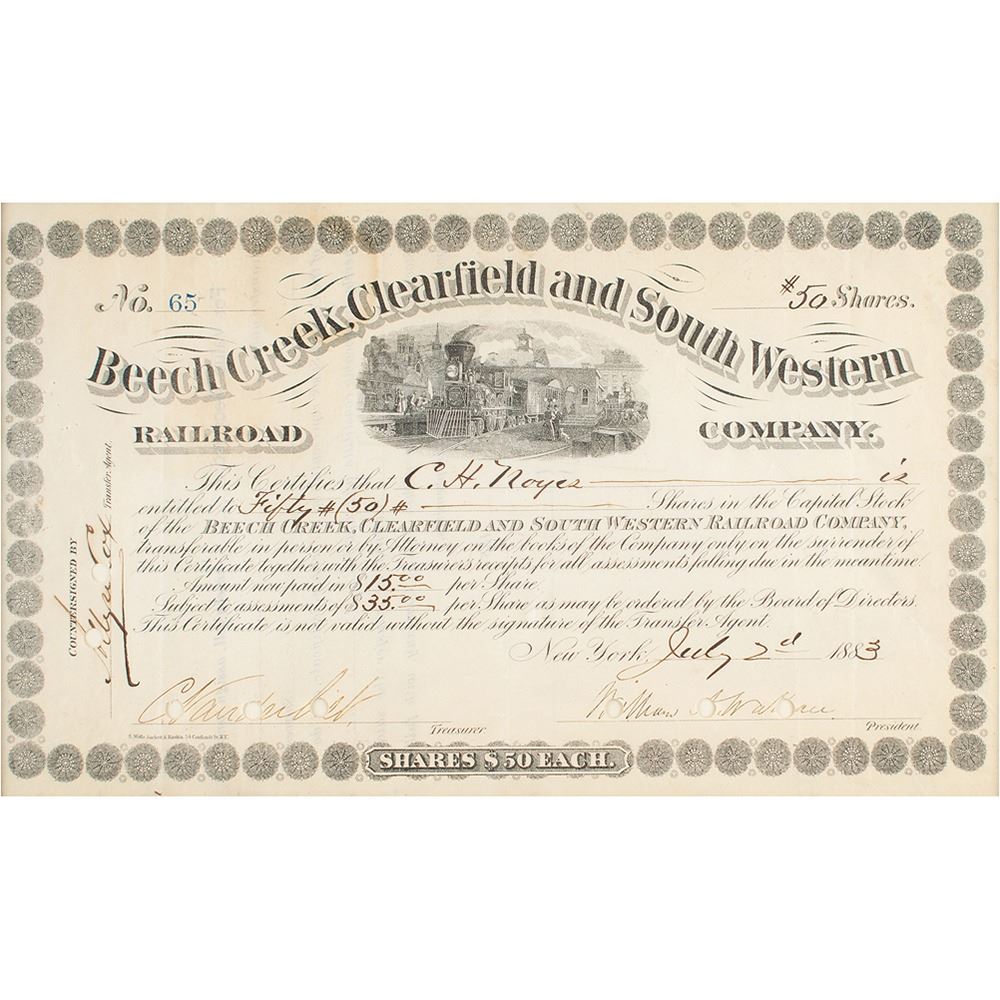 No. 65
#50 Shares.
Beech Creek, Clearfield and South Western
RAILROAD COMPANY.
This Certifies that C. H. Noyes is
entitled to Fifty # (50) # Shares in the Capital Stock
of the BEECH CREEK, CLEARFIELD AND SOUTH WESTERN RAILROAD COMPANY,
transferable in person or by Attorney on the books of the Company only on the surrender of
this Certificate together with the Treasurers receipts for all assessments falling due in the meantime.
Amount now paid in $15.00 per Share.
Subject to assessments of $35.00 per Share as may be ordered by the Board of Directors.
This Certificate is not valid without the signature of the Transfer Agent.
New York, July 2d 1883
COUNTERSIGNED BY
Cox Transfer Agent.
C. Vanderbilt
Treasurer
William
President
SHARES $50 EACH.